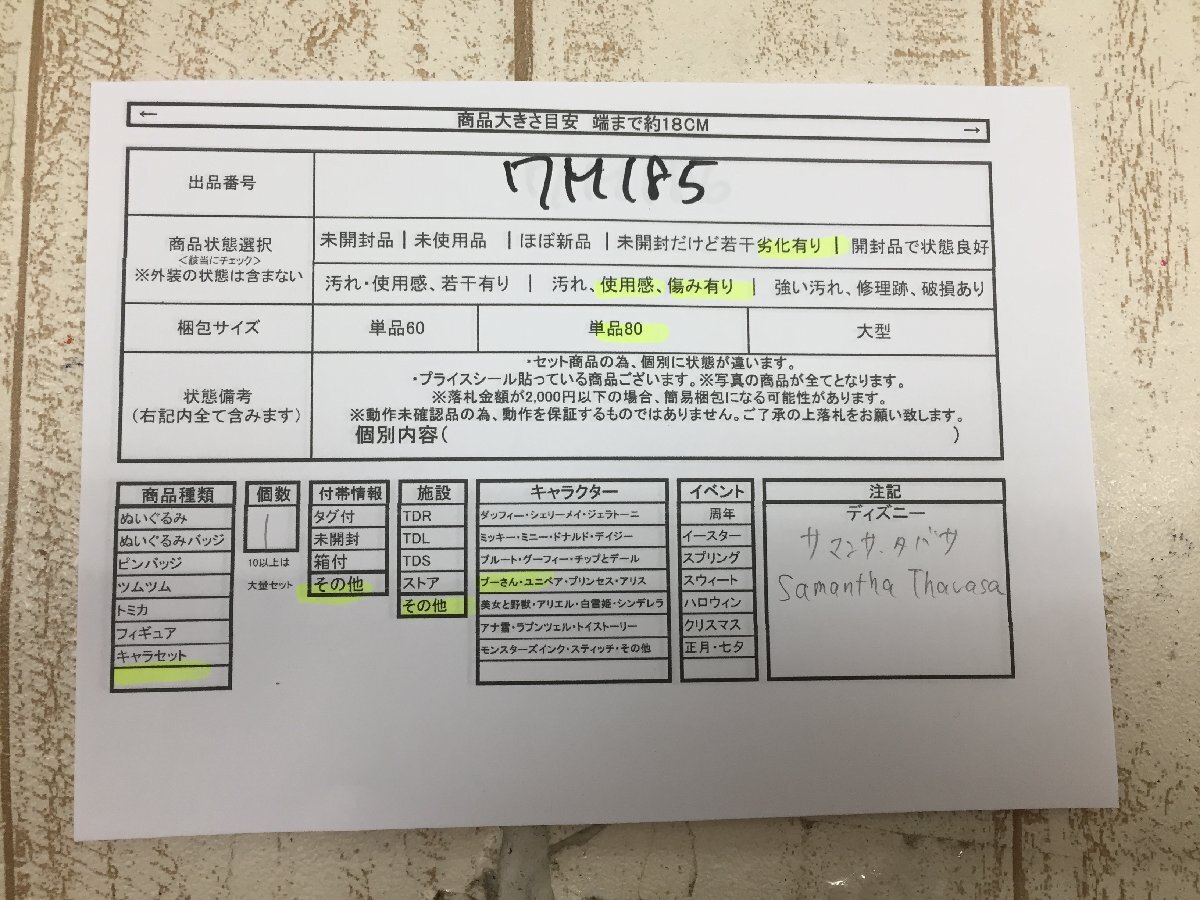 ← 商品大きさ目安 端まで約18CM →
出品番号 7M185
商品状態選択
<該当にチェック>
※外装の状態は含まない
未開封品 | 未使用品 | ほぼ新品 | 未開封だけど若干劣化有り | 開封品で状態良好
汚れ・使用感、若干有り | 汚れ、使用感、傷み有り | 強い汚れ、修理跡、破損あり
梱包サイズ 単品60 単品80 大型
状態備考
(右記内全て含みます)
・セット商品の為、個別に状態が違います。
・プライスシール貼っている商品ございます。※写真の商品が全てとなります。
※落札金額が2,000円以下の場合、簡易梱包になる可能性があります。
※動作未確認品の為、動作を保証するものではありません。ご了承の上落札をお願い致します。
個別内容( )
商品種類
ぬいぐるみ
ぬいぐるみバッジ
ピンバッジ
ツムツム
トミカ
フィギュア
キャラセット
個数
1
10以上は
大量セット
付帯情報
タグ付
未開封
箱付
その他
施設
TDR
TDL
TDS
ストア
その他
キャラクター
ダッフィー・シェリーメイ・ジェラトーニ
ミッキー・ミニー・ドナルド・デイジー
プルート・グーフィー・チップとデール
プーさん・ユニベア・プリンセス・アリス
美女と野獣・アリエル・白雪姫・シンデレラ
アナ雪・ラプンツェル・トイストーリー
モンスターズインク・スティッチ・その他
イベント
周年
イースター
スプリング
スウィート
ハロウィン
クリスマス
正月・七夕
注記
ディズニー
サマンサ・タバサ
Samantha Thavasa